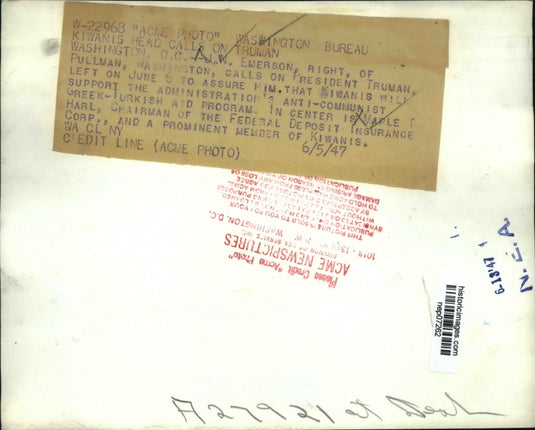 W-22968 "ACME PHOTO" WASHINGTON BUREAU
KIWANIS HEAD CALLS ON TRUMAN
WASHINGTON, D.C. EMERSON, RIGHT, OF
PULLMAN, WASHINGTON, CALLS ON PRESIDENT TRUMAN,
LEFT ON JUNE 5 TO ASSURE HIM THAT KIWANIS WILL
SUPPORT THE ADMINISTRATION'S ANTI-COMMUNIST
GREEK-TURKISH AID PROGRAM. IN CENTER IS MAPLE T.
HARL, CHAIRMAN OF THE FEDERAL DEPOSIT INSURANCE
CORP., AND A PROMINENT MEMBER OF KIWANIS.
WA CL NY 6/5/47
CREDIT LINE (ACME PHOTO)
THIS PICTURE IS SOLD TO YOU FOR YOUR
PUBLICATION
WASHINGTON, D.C.
ACME NEWSPICTURES
Please Credit "Acme Photo"
N.E.A.
6-13-47
historicimages.com
nep07282
A27921